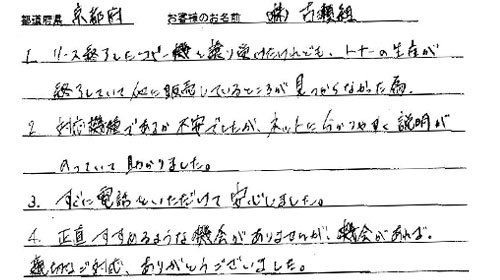 都道府県 京都府 お客様のお名前 (株)古瀬組
1. リース終了したコピー機を譲り受けたけれども、トナーの生産が
終了していて他に販売しているところが見つからなかった為。
2. 対応機種であるか不安でしたが、ネットに分かりやすく説明が
のっていて助かりました。
3. すぐに電話をいただけて安心しました。
4. 正直すすめるような機会がありませんが、機会があれば。
親切なご対応、ありがとうございました。